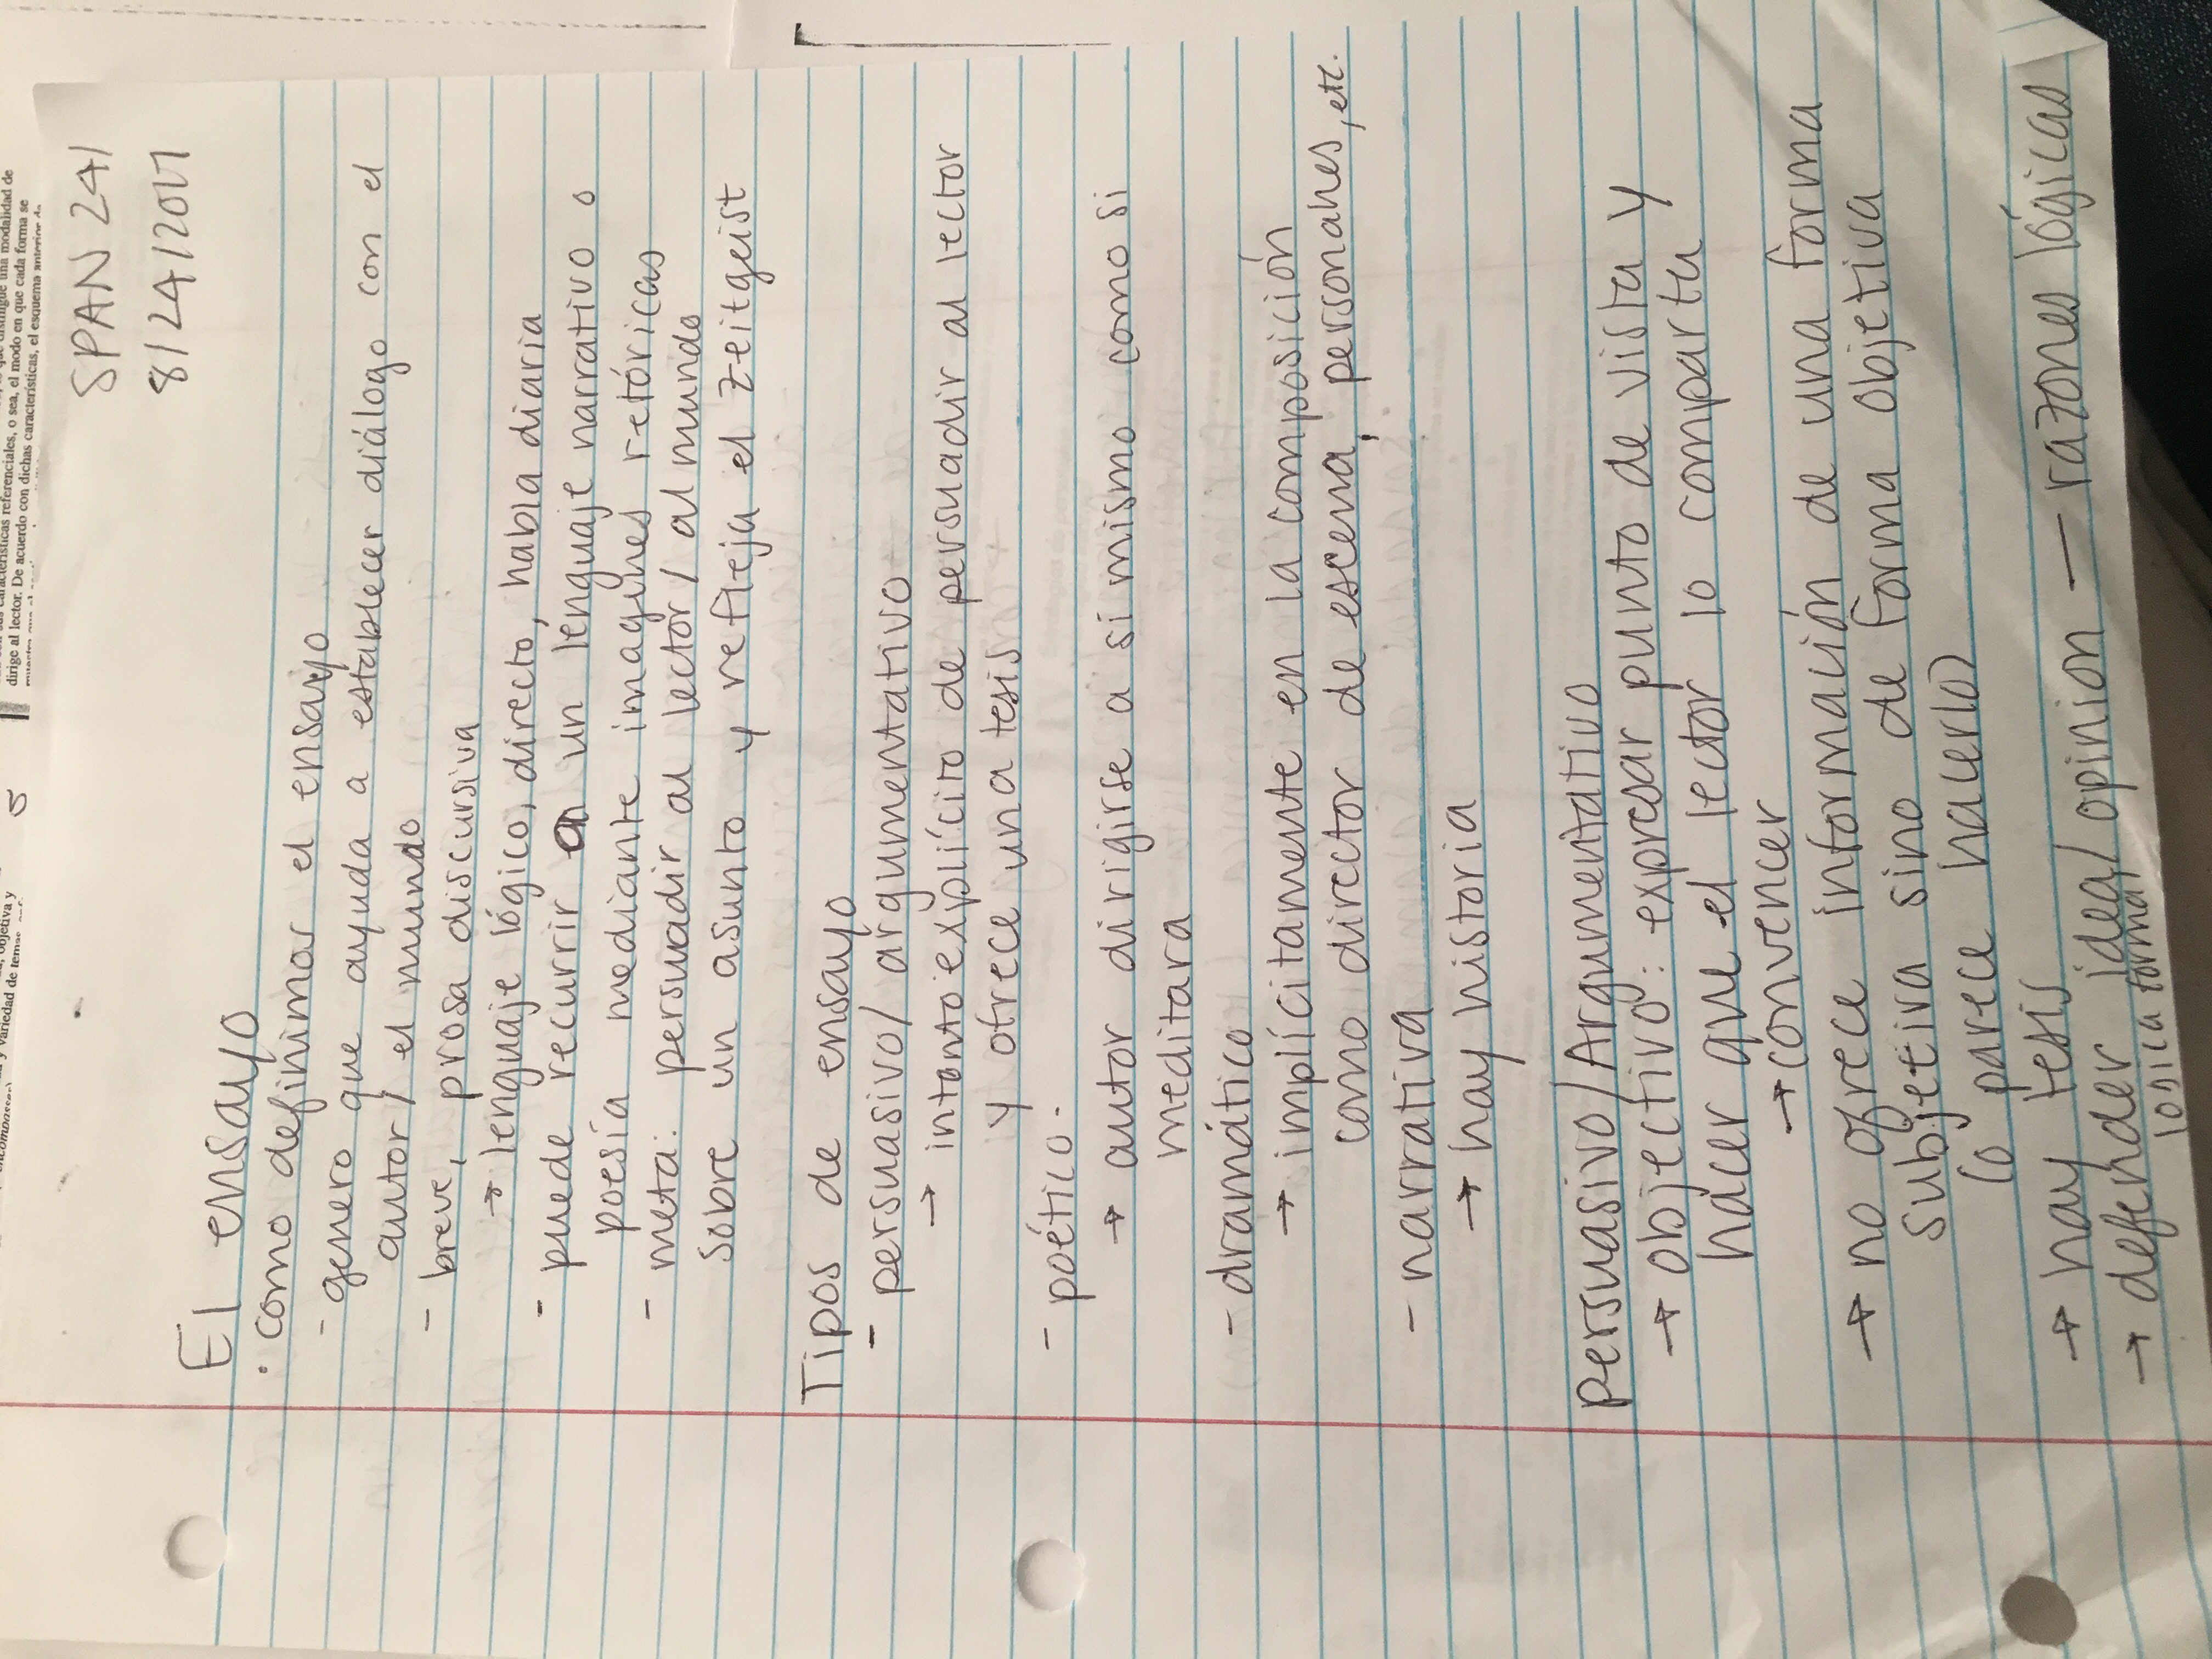 objetiva y
y variedad de temas
características referenciales, o sea, el modo en que cada forma se
dirige al lector. De acuerdo con dichas características, el esquema anterior
SPAN 241
8/24/2017
El ensayo
• como definimos el ensayo
- genero que ayuda a establecer diálogo con el
autor / el mundo
- breve, prosa discursiva
→ lenguaje lógico, directo, habla diaria
- puede recurrir a un lenguaje narrativo o
poesía mediante imagines retóricas
- meta: persuadir al lector / al mundo
sobre un asunto y refleja el zeitgeist
Tipos de ensayo
- persuasivo / argumentativo
→ intento explícito de persuadir al lector
y ofrece una tesis
- poético -
→ autor dirigirse a sí mismo como si
meditara
- dramático
→ implícitamente en la composición
como director de escena, personahes, etc.
- narrativa
→ hay historia
Persuasivo / Argumentativo
→ objectivo: expresar punto de vista y
hacer que el lector lo comparta
→ convencer
→ no ofrece información de una forma
subjetiva sino de forma objetiva
(o parece hacerlo)
→ hay tesis
→ defender idea / opinion — razones lógicas
logica formal